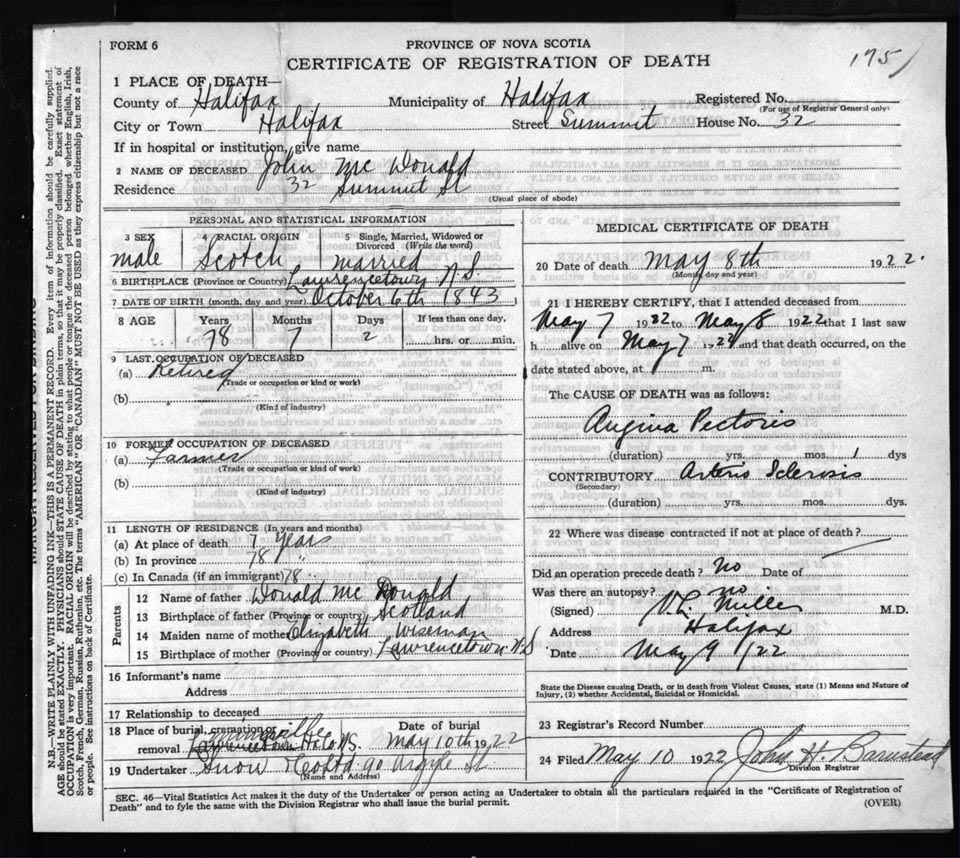 FORM 6
PROVINCE OF NOVA SCOTIA
CERTIFICATE OF REGISTRATION OF DEATH
175
1 PLACE OF DEATH—
County of Halifax Municipality of Halifax Registered No.
(For use of Registrar General only)
City or Town Halifax Street Summit House No. 32
If in hospital or institution, give name
2 NAME OF DECEASED John Mc Donald
Residence 32 Summit St
(Usual place of abode)
PERSONAL AND STATISTICAL INFORMATION
3 SEX 4 RACIAL ORIGIN 5 Single, Married, Widowed or
Divorced (Write the word)
male Scotch married
6 BIRTHPLACE (Province or Country) Lawrencetown N.S.
7 DATE OF BIRTH (month, day and year) October 6th 1843
8 AGE Years Months Days If less than one day,
78 7 2 hrs. or min.
9 LAST OCCUPATION OF DECEASED
(a) Retired
(Trade or occupation or kind or work)
(b)
(Kind of industry)
10 FORMER OCCUPATION OF DECEASED
(a) Farmer
(Trade or occupation or kind or work)
(b)
(Kind of industry)
11 LENGTH OF RESIDENCE (In years and months)
(a) At place of death 7 Years
(b) In province 78
(c) In Canada (if an immigrant) 78
Parents
12 Name of father Donald Mc Donald
13 Birthplace of father (Province or country) Scotland
14 Maiden name of mother Elizabeth Wiseman
15 Birthplace of mother (Province or country) Lawrencetown N.S
16 Informant's name
Address
17 Relationship to deceased
18 Place of burial, cremation or Date of burial
removal Hfx Co N.S. May 10th 1922
19 Undertaker Snow & Co Ltd 90 Argyle St
(Name and Address)
MEDICAL CERTIFICATE OF DEATH
20 Date of death May 8th 1922.
(Month, day and year)
21 I HEREBY CERTIFY, that I attended deceased from
May 7 1922 to May 8 1922 that I last saw
h alive on May 7 1922 and that death occurred, on the
date stated above, at m.
The CAUSE OF DEATH was as follows:
Angina Pectoris
(duration) yrs. mos. 1 dys
CONTRIBUTORY Arterio Sclerosis
(Secondary)
(duration) yrs. mos. dys.
22 Where was disease contracted if not at place of death?
Did an operation precede death? no Date of
Was there an autopsy? no
(Signed) Miller M.D.
Address Halifax
Date May 9 /22
State the Disease causing Death, or in death from Violent Causes, state (1) Means and Nature of
Injury, (2) whether Accidental, Suicidal or Homicidal.
23 Registrar's Record Number
24 Filed May 10 1922 John H. Barnstead
Division Registrar
SEC. 46—Vital Statistics Act makes it the duty of the Undertaker or person acting as Undertaker to obtain all the particulars required in the "Certificate of Registration of
Death" and to fyle the same with the Division Registrar who shall issue the burial permit.
(OVER)
N.B.—WRITE PLAINLY WITH UNFADING INK—THIS IS A PERMANENT RECORD. Every item of information should be carefully supplied.
AGE should be stated EXACTLY. PHYSICIANS should STATE CAUSE OF DEATH in plain terms, so that it may be properly classified. Exact statement of
OCCUPATION is very important. RACIAL ORIGIN will be described by stating to what people or tongue the deceased person belonged whether English, Irish,
Scotch, French, German, Russian, Ruthenian, etc. The terms "AMERICAN" OR "CANADIAN" MUST NOT BE USED as they express citizenship but not a race
or people. See instructions on back of Certificate.